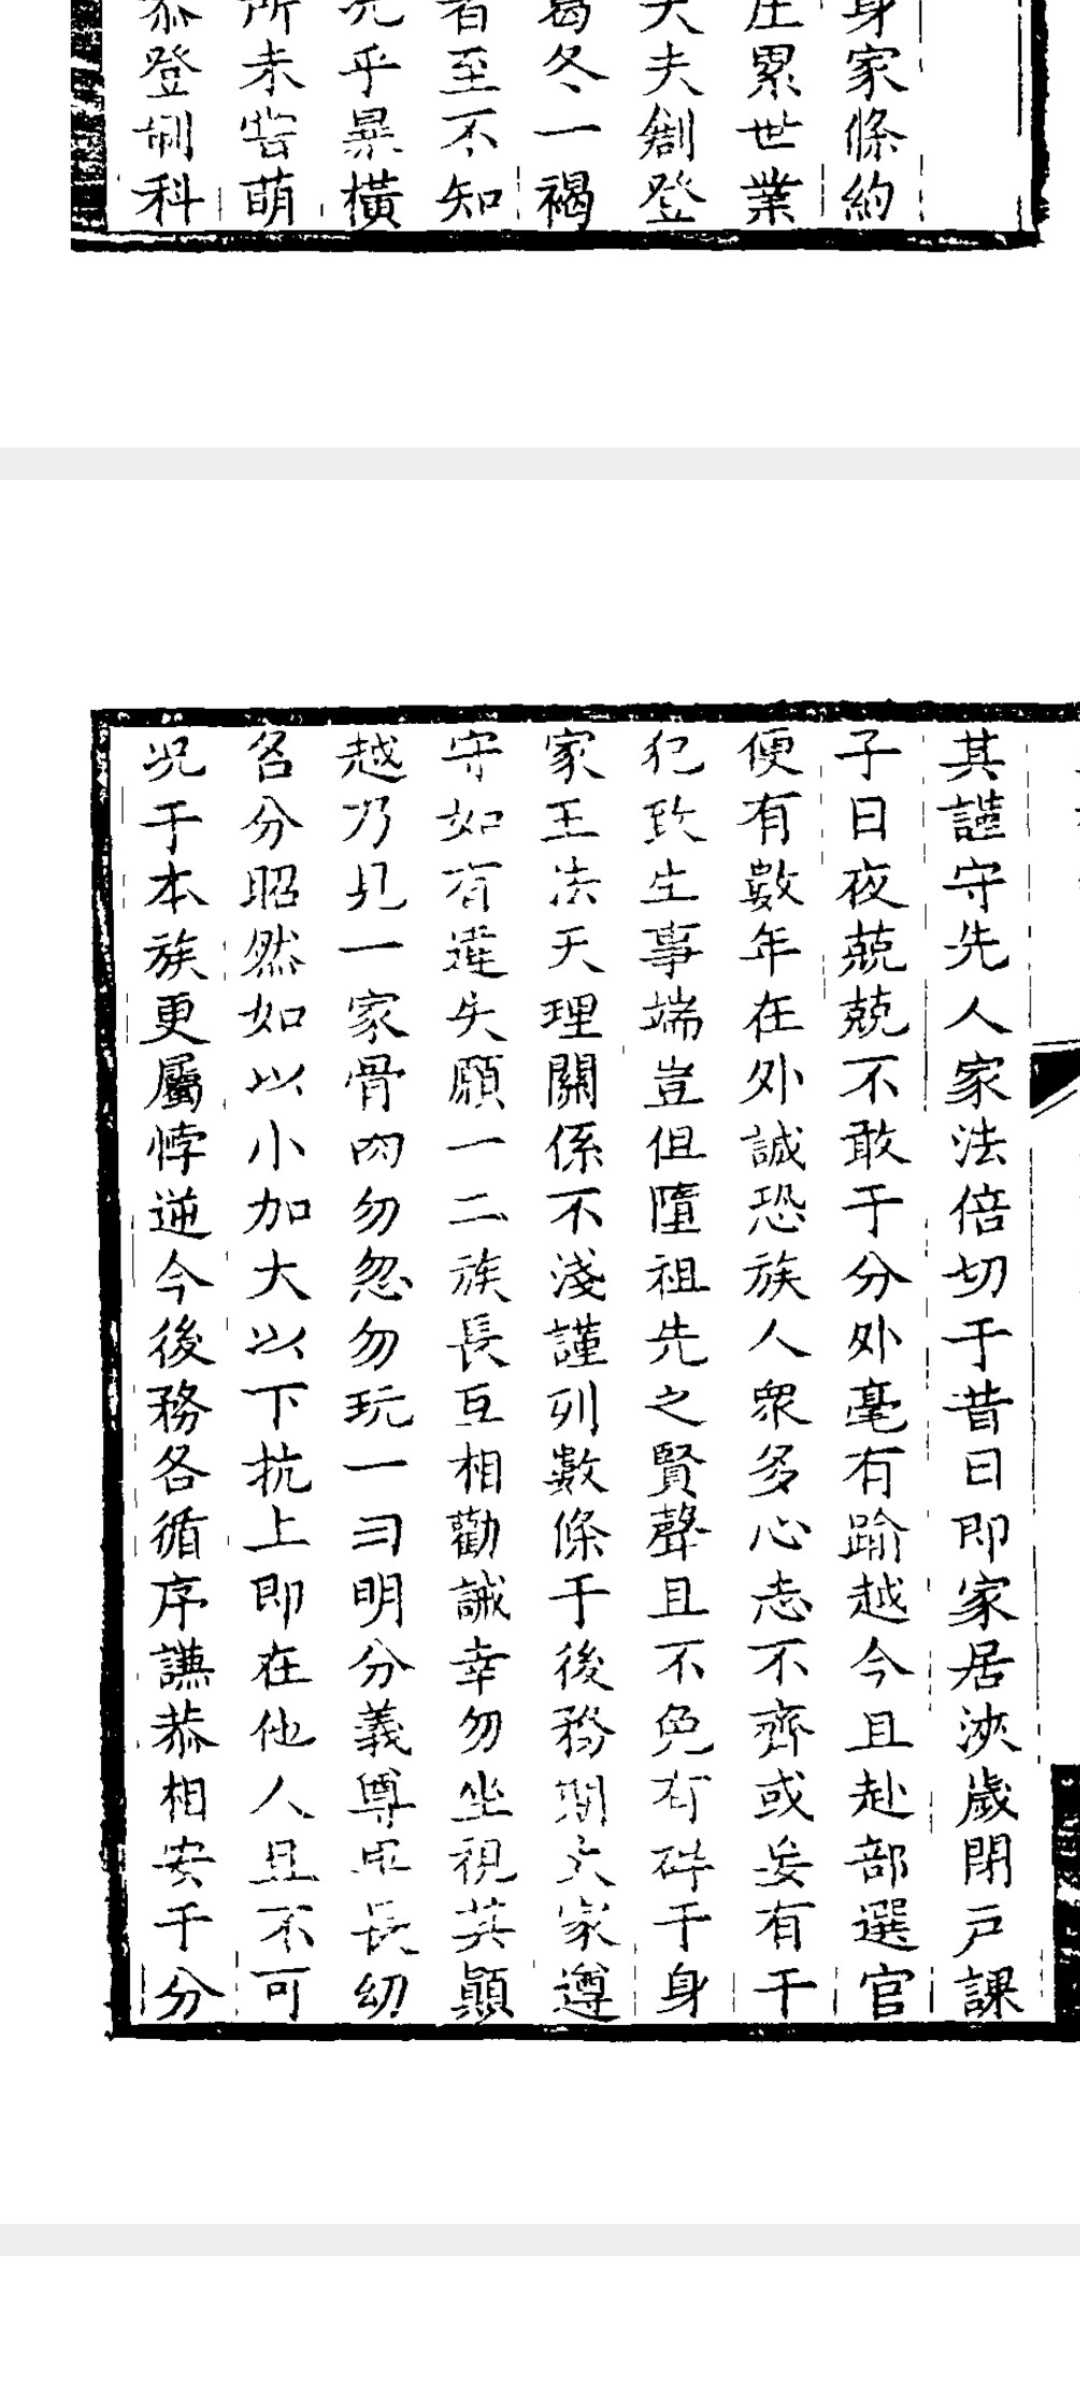 身家條約
庄累世業
大夫創登
葛冬一褐
者至不知
乎暴橫
所未嘗萌
恭登制科
其謹守先人家法倍切于昔日即家居浹歲閉戸課
子日夜兢兢不敢于分外毫有踰越今且赴部選官
便有數年在外誠恐族人衆多心志不齊或妄有干
犯致生事端豈但隳祖先之賢聲且不免有碍于身
家王法天理關係不淺謹列數條于後務期大家遵
守如有違失願一二族長互相勸誡幸勿坐視其顛
越乃見一家骨肉勿忽勿玩一曰明分義尊卑長幼
名分昭然如以小加大以下抗上即在他人且不可
况于本族更屬悖逆今後務各循序謙恭相安于分